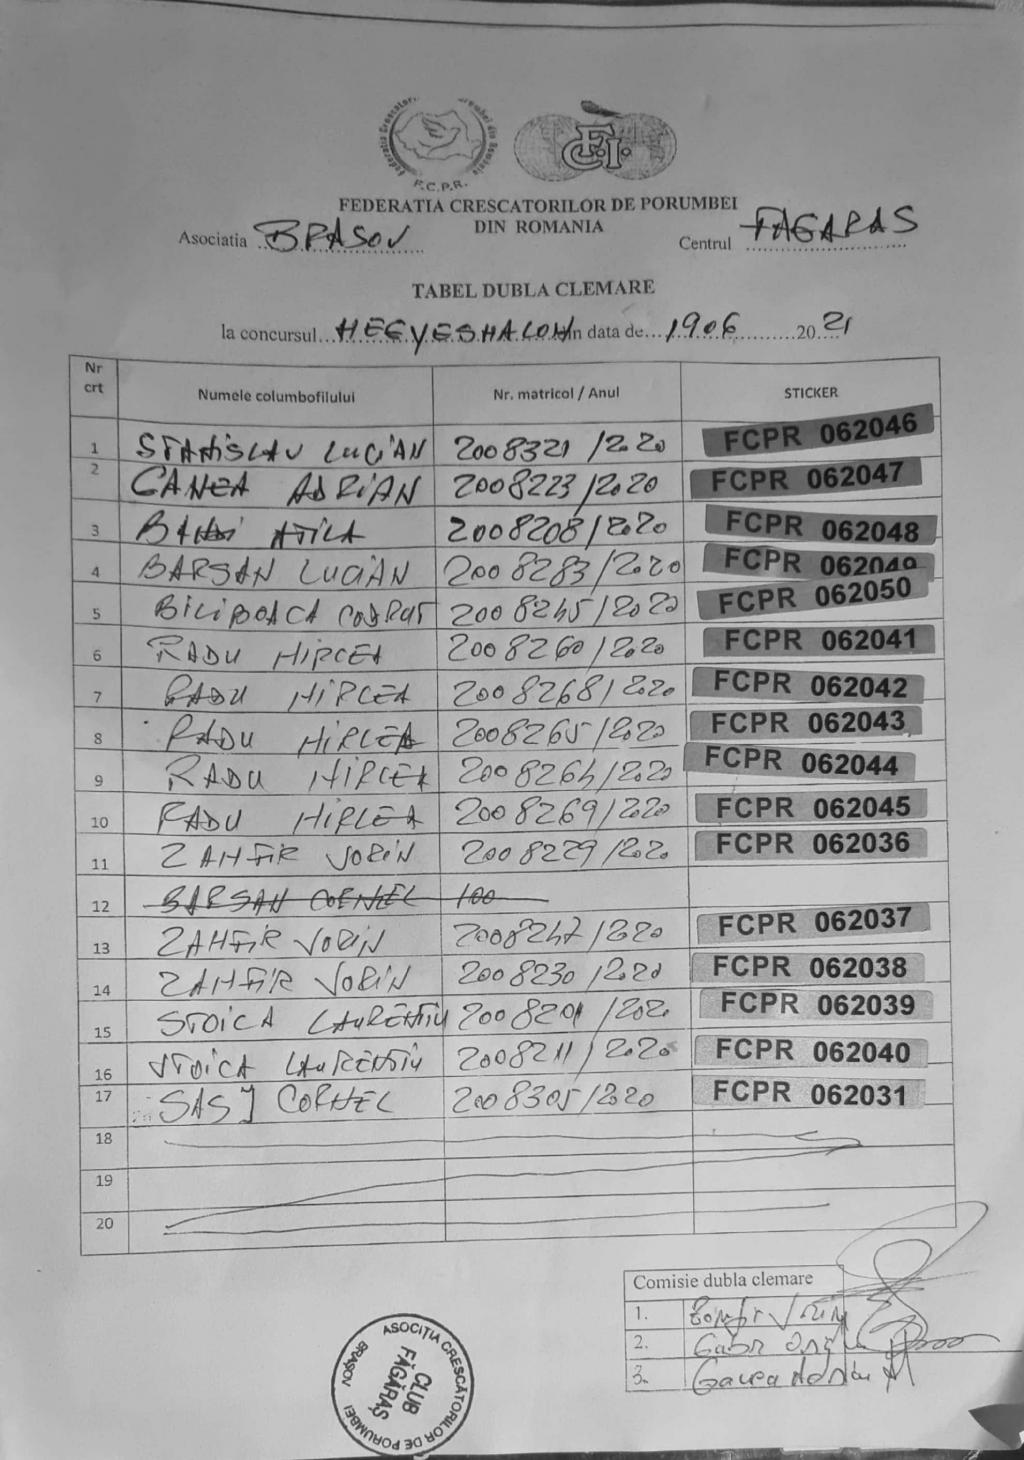 F.C.P.R.
F.C.I.
FEDERATIA CRESCATORILOR DE PORUMBEI
DIN ROMANIA
Asociatia BRASOV Centrul FAGARAS
TABEL DUBLA CLEMARE
la concursul HEGYESHALOM in data de 1906 2021
Nr crt Numele columbofilului Nr. matricol / Anul STICKER
1 STANISLAV LUCIAN 2008321 /2020 FCPR 062046
2 GANEA ADRIAN 2008223/2020 FCPR 062047
3 ATILA 2008208/2020 FCPR 062048
4 BARSAN LUCIAN 2008283/2020 FCPR 062049
5 BILIBOACA CODRUT 2008245/2020 FCPR 062050
6 RADU MIRCEA 2008260/2020 FCPR 062041
7 RADU MIRCEA 2008268/2020 FCPR 062042
8 RADU MIRCEA 2008265/2020 FCPR 062043
9 RADU MIRCEA 2008264/2020 FCPR 062044
10 RADU MIRCEA 2008269/2020 FCPR 062045
11 ZAMFIR SORIN 2008229/2020 FCPR 062036
12 BARSAN CORNEL 100
13 ZAMFIR SORIN 2008247/2020 FCPR 062037
14 ZAMFIR SORIN 2008230/2020 FCPR 062038
15 STOICA LAURENTIU 2008201/2020 FCPR 062039
16 STOICA LAURENTIU 2008211/2020 FCPR 062040
17 SASJ CORNEL 2008305/2020 FCPR 062031
18
19
20
Comisie dubla clemare
1. Zamfir Sorin
2. Gabor
3. Ganea Adrian
ASOCIȚIA CRESCĂTORILOR DE PORUMBEI BRAȘOV
CLUB
FĂGĂRAȘ